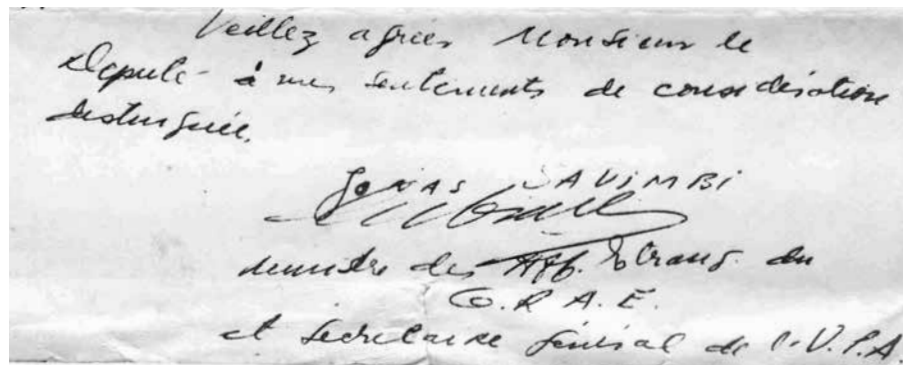 Veillez agréer Monsieur le
Député à mes sentements de considération
distinguée.
JONAS SAVIMBI
ministre des Aff. Etrang. du
G.R.A.E.
et secretaire général de l'U.P.A.